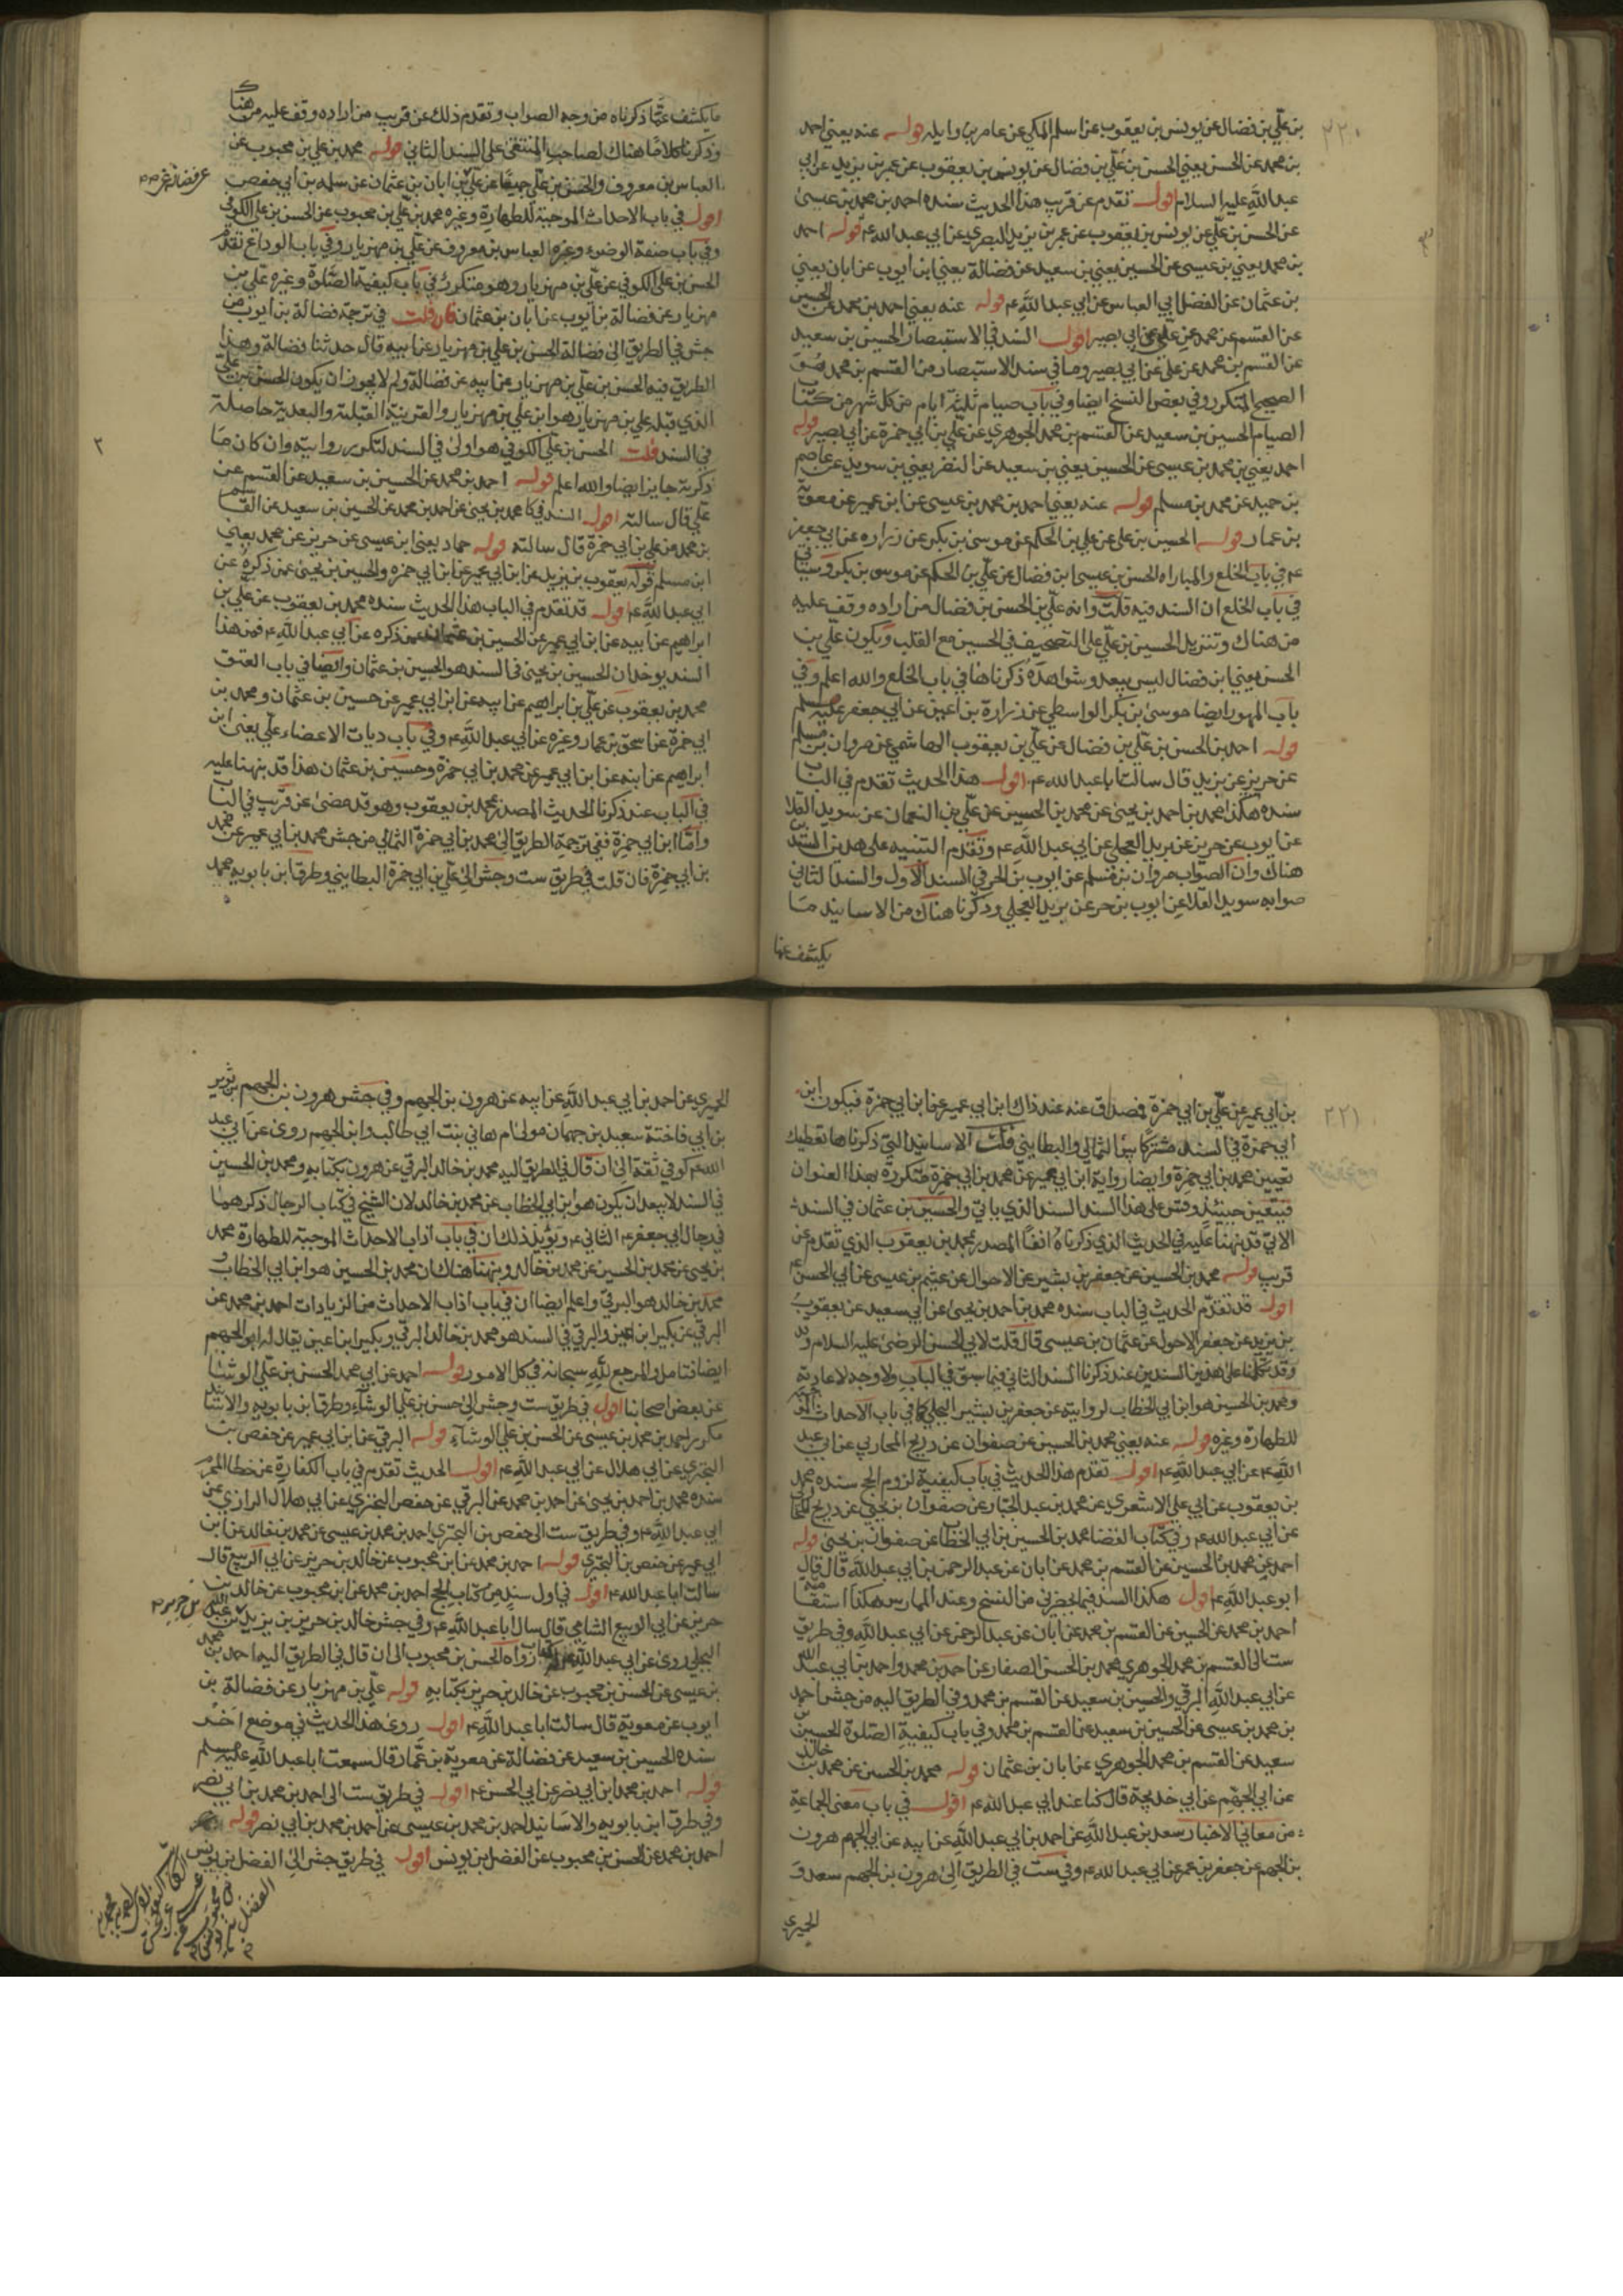 ٢٢٠
بن علي بن فضال عن يونس بن يعقوب عن اسلم المكي عن عامر بن واثلة قوله عنه يعني احمد
بن محمد عن الحسن يعني الحسن بن علي بن فضال عن يونس بن يعقوب عن عمر بن يزيد عن ابي
عبد الله عليه السلام اقول تقدم عن قريب هذا الحديث سنده احمد بن محمد بن عيسى
عن الحسن بن علي عن يونس بن يعقوب عن عمر بن يزيد البصري عن ابي عبد الله ع قوله احمد
بن محمد يعني بن عيسى عن الحسين يعني بن سعيد عن فضالة يعني ابن ايوب عن ابان يعني
بن عثمان عن الفضل ابي العباس عن ابي عبد الله ع قوله عنه يعني احمد بن محمد عن الحسين
عن القسم عن محمد عن علي عن ابي بصير اقول السند في الاستبصار الحسين بن سعيد
عن القسم بن محمد عن علي عن ابي بصير وما في سند الاستبصار من القسم بن محمد هو
الصحيح المتكرر وفي بعض النسخ ايضا وفي باب صيام ثلثة ايام من كل شهر من كتاب
الصيام الحسين بن سعيد عن القسم بن محمد الجوهري عن علي بن ابي حمزة عن ابي بصير قوله
احمد يعني بن محمد بن عيسى عن الحسين يعني بن سعيد عن النضر يعني بن سويد عن عاصم
بن حميد عن محمد بن مسلم قوله عنه يعني احمد بن محمد بن عيسى عن ابن عمير عن معوية
بن عمار قوله الحسين بن علي عن علي بن الحكم عن موسى بن بكر عن زراره عن ابي جعفر
ع في باب الخلع والمباراه الحسن بن عيسى ابن فضال عن علي بن الحكم عن موسى بن بكر وسياتي
في باب الخلع ان السند فيه قلت وانه علي بن الحسن بن فضال من اراده وقف عليه
من هناك وتنزيل الحسين بن علي على التصحيف في الحسين مع القلب ويكون علي بن
الحسن يعني ابن فضال ليس ببعيد وشواهده ذكرناها في باب الخلع والله اعلم وفي
باب المهور ايضا موسى بن بكر الواسطي عن زرارة بن اعين عن ابي جعفر عليه السلام
قوله احمد بن الحسن بن علي بن فضال عن علي بن يعقوب الهاشمي عن مروان بن مسلم
عن حريز عن بريد قال سالت ابا عبد الله ع اقول هذا الحديث تقدم في الباب
سنده هكذا محمد بن احمد بن يحيى عن محمد بن الحسين عن علي بن النعمان عن سويد القلا
عن ايوب عن حريز عن بريد العجلي عن ابي عبد الله ع وتقدم التنبيه على هذين السندين
هناك وان الصواب مروان بن مسلم عن ايوب بن الحر في السند الاول والسند الثاني
صوابه سويد القلا عن ايوب بن حر عن بريد العجلي وذكرنا هناك من الاسانيد ما
يكشف عما
ما يكشف عما ذكرناه من وجه الصواب وتقدم ذلك عن قريب من اراده وقف عليه من هناك
وذكرنا كلاما هناك لصاحب المنتقى على السند الثاني قوله محمد بن علي بن محبوب عن
العباس بن معروف والحسن بن علي جميعا عن علي بن ابان بن عثمان عن سلمه بن ابي حفص
اقول في باب الاحداث الموجبة للطهارة وغيره محمد بن علي بن محبوب عن الحسن بن علي الكوفي
وفي باب صفة الوضوء وغيره العباس بن معروف عن علي بن مهزيار وفي باب الوداع تقدم
الحسن بن علي الكوفي عن علي بن مهزيار وهو متكرر في باب كيفية الصلوة وغيره علي بن
مهزيار عن فضالة بن ايوب عن ابان بن عثمان فان قلت في ترجمة فضالة بن ايوب من
جش في الطريق الى فضالة الحسن بن علي بن مهزيار عن ابيه قال حدثنا فضالة وهذا
الطريق فيه الحسن بن علي بن مهزيار عن ابيه عن فضالة ولم لا يجوز ان يكون الحسن بن علي
الذي قبله علي بن مهزيار هو ابن علي بن مهزيار والقرينة القبلية والبعدية حاصلة
في السند قلت الحسن بن علي الكوفي هو اولى في السند لتكرر روايته وان كان ما
ذكرته جايز ايضا والله اعلم قوله احمد بن محمد عن الحسين بن سعيد عن القسم عن
علي قال سالته اقول السند في كا محمد بن يحيى عن احمد بن محمد عن الحسين بن سعيد عن القسم
بن محمد عن علي بن ابي حمزة قال سالته قوله حماد يعني ابن عيسى عن حريز عن محمد يعني
ابن مسلم قوله يعقوب بن يزيد عن ابن ابي عمير عن ابن ابي حمزه والحسين بن يحيى عمن ذكره عن
ابي عبد الله ع اقول قد تقدم في الباب هذا الحديث سنده محمد بن يعقوب عن علي بن
ابراهيم عن ابيه عن ابن ابي عمير عن الحسين بن عثمان عمن ذكره عن ابي عبد الله ع فمن هذا
السند يوخذ ان الحسين بن يحيى في السند هو الحسين بن عثمان وايضا في باب العتق
محمد بن يعقوب عن علي بن ابراهيم عن ابيه عن ابن ابي عمير عن حسين بن عثمان ومحمد بن
ابي حمزة عن اسحق بن عمار وغيره عن ابي عبد الله ع وفي باب ديات الاعضاء علي يعني ابن
ابراهيم عن ابيه عن ابن ابي عمير عن محمد بن ابي حمزة وحسين بن عثمان هذا قد نبهنا عليه
في الباب عند ذكرنا الحديث المصدر بمحمد بن يعقوب وهو قد مضى عن قريب في الباب
واما ابن ابي حمزة ففي ترجمة الطريق الى محمد بن ابي حمزة الثمالي من جش محمد بن ابي عمير عن محمد
بن ابي حمزة فان قلت في طريق ست وجش الى علي بن ابي حمزة البطايني وطرق ابن بابويه محمد
٢٢١
بن ابي عمير عن علي بن ابي حمزة فصداق عنه عند ذاك ابن ابي عمير عن ابن ابي حمزة فيكون ابن
ابي حمزة في السند مشتركا بين الثمالي والبطايني قلت الاسانيد التي ذكرناها تعطيك
تعيين محمد بن ابي حمزة وايضا رواية ابن ابي عمير عن محمد بن ابي حمزة متكررة بهذا العنوان
فيتعين حينئذ وقس على هذا السند السند الذي ياتي والحسين بن عثمان في السند
الاتي قد نبهنا عليه في الحديث الذي ذكرناه انفا المصدر بمحمد بن يعقوب الذي تقدم عن
قريب قوله محمد بن الحسين عن جعفر بن بشير عن الاحول عن عثيم بن عيسى عن ابي الحسن ع
اقول قد تقدم الحديث في الباب سنده محمد بن احمد بن يحيى عن ابي سعيد عن يعقوب
بن يزيد عن جعفر الاحول عن عثمان بن عيسى قال قلت لابي الحسن الرضى عليه السلام
وقد تكلمنا على هذين السندين عند ذكرنا السند الثاني فيما سبق في الباب ولا وجه لاعادته
ومحمد بن الحسين هو ابن ابي الخطاب لروايته عن جعفر بن بشير البجلي كما في باب الاحداث الموجبة
للطهارة وغيره قوله عنه يعني محمد بن الحسين عن صفوان عن ذريح المحاربي عن ابي عبد
الله ع عن ابي عبد الله ع اقول تقدم هذا الحديث في باب كيفية لزوم الحج سنده محمد
بن يعقوب عن ابي علي الاشعري عن محمد بن عبد الجبار عن صفوان بن يحيى عن ذريح المحاربي
عن ابي عبد الله ع وفي كتاب القضا محمد بن الحسين بن ابي الخطاب عن صفوان بن يحيى قوله
احمد عن محمد بن الحسين عن القسم بن محمد عن ابان عن عبد الرحمن بن ابي عبد الله قال قال
ابو عبد الله ع اقول هكذا السند فيما يحضرني من النسخ وعند الممارس هكذا استقامته
احمد بن محمد عن الحسين عن القسم بن محمد عن ابان عن عبد الرحمن عن ابي عبد الله وفي طريق
ست الى القسم بن محمد الجوهري محمد بن الحسن الصفار عن احمد بن محمد واحمد بن ابي عبد الله
عن ابي عبد الله البرقي والحسين بن سعيد عن القسم بن محمد وفي الطريق اليه من جش احمد
بن محمد بن عيسى عن الحسين بن سعيد عن القسم بن محمد وفي باب كيفية الصلوة الحسين بن
سعيد عن القسم بن محمد الجوهري عن ابان بن عثمان قوله محمد بن الحسن عن محمد بن خالد
عن ابي الجهم عن ابي خديجة قال كنا عند ابي عبد الله ع اقول في باب معنى الجماعة
من معاني الاخبار سعد بن عبد الله عن احمد بن ابي عبد الله عن ابيه عن ابي الجهم هرون
بن الجهم عن جعفر بن عمر عن ابي عبد الله ع وفي ست في الطريق الى هرون بن الجهم سعد و
الحميري
الحميري عن احمد بن ابي عبد الله عن ابيه عن هرون بن الجهم وفي جش هرون بن الجهم بن ثوير
بن ابي فاختة سعيد بن جمهان مولى ام هاني بنت ابي طالب وابن الجهم روى عن ابي عبد
الله ع كوفي ثقة الى ان قال في الطريق اليه محمد بن خالد البرقي عن هرون بكتابه ومحمد بن الحسين
في السند لا يبعد ان يكون هو ابن ابي الخطاب عن محمد بن خالد لان الشيخ في كتاب الرجال ذكرهما
في رجال ابي جعفر الثاني ع ويؤيد ذلك ان في باب اداب الاحداث الموجبة للطهارة محمد
بن يحيى عن محمد بن الحسين عن محمد بن خالد ونبهنا هناك ان محمد بن الحسين هو ابن ابي الخطاب و
محمد بن خالد هو البرقي واعلم ايضا ان في باب اداب الاحداث من الزيادات احمد بن محمد عن
البرقي عن بكير ابن اعين والبرقي في السند هو محمد بن خالد البرقي وبكير ابن اعين يقال له ابو الجهم
ايضا فتامل والمرجع لله سبحانه في كل الامور قوله احمد عن ابي محمد الحسن بن علي الوشاء
عن بعض اصحابنا اقول في طريق ست وجش الى حسن بن علي الوشاء وطرق ابن بابويه والاسناد
مكرر احمد بن محمد بن عيسى عن الحسن بن علي الوشاء قوله البرقي عن ابن ابي عمير عن حفص بن
البختري عن ابي هلال عن ابي عبد الله ع اقول الحديث تقدم في باب الكفارة عن خطا المحرم
سنده محمد بن احمد بن يحيى عن احمد بن محمد عن البرقي عن حفص البختري عن ابي هلال الرازي عن
ابي عبد الله ع وفي طريق ست الى حفص بن البختري احمد بن محمد بن عيسى عن محمد بن خالد عن ابن
ابي عمير عن حفص بن البختري قوله احمد بن محمد عن ابن محبوب عن خالد بن حريز عن ابي الربيع قال
سالت ابا عبد الله ع اقول في اول سند من كتاب الحج احمد بن محمد عن ابن محبوب عن خالد بن
حريز عن ابي الربيع الشامي قال سال ابا عبد الله ع وفي جش خالد بن حريز بن يزيد بن عبد الله
البجلي روى عن ابي عبد الله له كتاب رواه الحسن بن محبوب الى ان قال في الطريق اليه احمد بن محمد
بن عيسى عن الحسن بن محبوب عن خالد بن حريز بكتابه قوله علي بن مهزيار عن فضالة بن
ايوب عن معوية قال سالت ابا عبد الله ع اقول روى هذا الحديث في موضع اخر
سنده الحسين بن سعيد عن فضالة عن معوية بن عمار قال سمعت ابا عبد الله عليه السلام
قوله احمد بن محمد ابن ابي نصر عن ابي الحسن ع اقول في طريق ست الى احمد بن محمد بن ابي نصر
وفي طرق ابن بابويه والاسانيد احمد بن محمد بن عيسى عن احمد بن محمد بن ابي نصر قوله
احمد بن محمد عن الحسن بن محبوب عن الفضل بن يونس اقول في طريق جش الى الفضل بن يونس